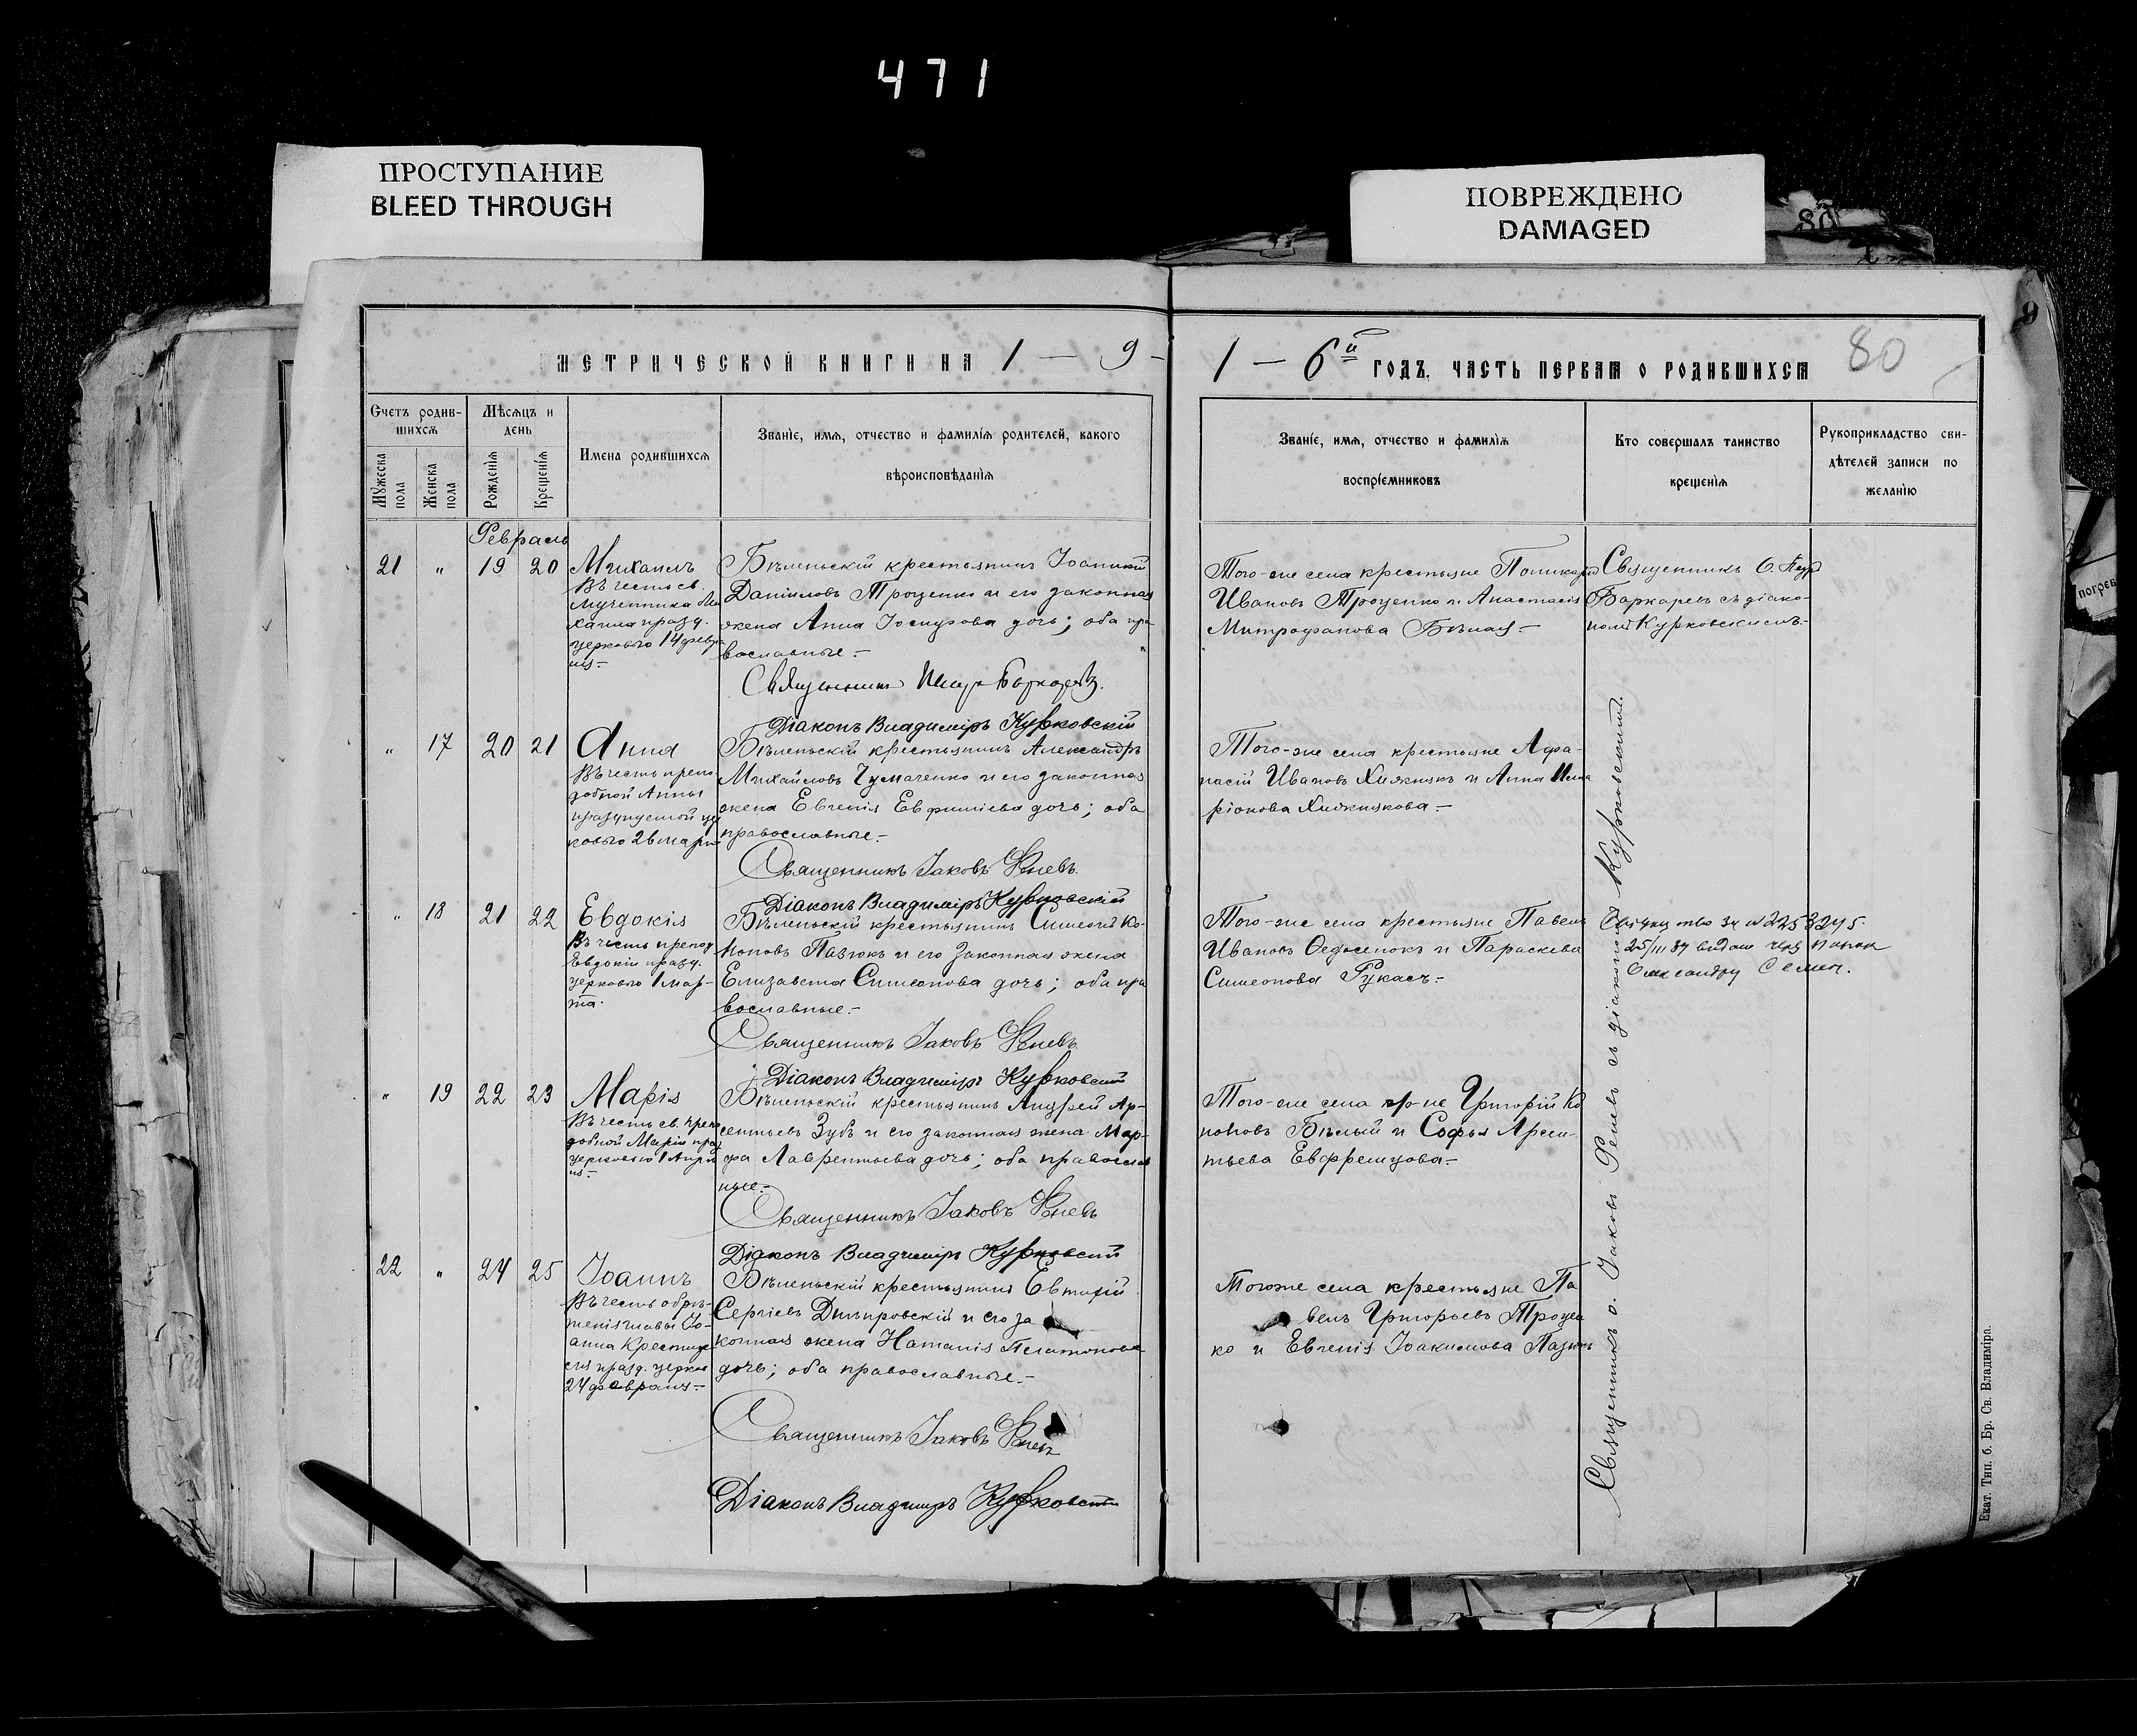 471
ПРОСТУПАНИЕ
BLEED THROUGH
ПОВРЕЖДЕНО
DAMAGED
80
МЕТРИЧЕСКОЙ КНИГИ НА 1 — 9 -
1 — 6й ГОДЪ, ЧАСТЬ ПЕРВАЯ О РОДИВШИХСЯ
80
Счетъ родив-
шихся
Мѣсяцъ и
день
Мужеска
пола
Женска
пола
Рожденія
Крещенія
Имена родившихся
Званіе, имя, отчество и фамилія родителей, какого
вѣроисповѣданія
Званіе, имя, отчество и фамилія
воспріемниковъ
Кто совершалъ таинство
крещенія
Рукоприкладство сви-
дѣтелей записи по
желанію
Февраль
21 " 19 20 Михаилъ
Въ честь св.
мученника Ми
хаила празд.
церковью 14 февра
ля-
Бѣленьскій крестьянинъ Іоанникій
Даніиловъ Троценко и его законная
жена Анна Іосифова дочь; оба пра
вославные.-
Священникъ Петръ Баркаревъ.
Діаконъ Владиміръ Курковскій
Того-же села крестьяне Поликарпъ
Ивановъ Троценко и Анастасія
Митрофанова Бѣлая-
Священникъ О. Петръ
Баркаревъ съ діако-
номъ Курковскимъ-
" 17 20 21 Анна
Въ честь препо
добной Анны
празднуемой цер
ковью 26 мар
Бѣленьскій крестьянинъ Александръ
Михайловъ Чумаченко и его законная
жена Евгенія Евфиміева дочь; оба
православные.-
Священникъ Іаковъ Феневъ.
Діаконъ Владиміръ Курковскій
Того-же села крестьяне Афа-
насій Ивановъ Хижнякъ и Анна Илла
ріонова Хижнякова-
" 18 21 22 Евдокія
Въ честь препод
Евдокіи празд.
церковью 1 мар-
та.
Бѣленьскій крестьянинъ Симеонъ Ко-
ноновъ Пазюкъ и его законная жена
Елизавета Симеонова дочь; оба пра
вославные.-
Священникъ Іаковъ Феневъ.
Діаконъ Владиміръ Курковскій
Того-же села крестьяне Павелъ
Ивановъ Федосенокъ и Параскева
Симеонова Рукасъ.-
25/III
" 19 22 23 Марія
Въ честь св. препо
добной Маріи праз
церковью 1 Апрѣ
ля-
Бѣленьскій крестьянинъ Андрей Ар-
сентьевъ Зубъ и его законная жена Мар-
фа Лаврентьева дочь; оба православ
ные.-
Священникъ Іаковъ Феневъ
Діаконъ Владиміръ Курковскій
Того-же села кр-не Григорій Ко
ноновъ Бѣлый и Софья Арсен-
тьева Евфремцова.-
22 " 24 25 Іоаннъ
Въ честь обрѣ-
тенія главы Іо-
анна Крестите
ля празд. церков
24 февраля-
Бѣленьскій крестьянинъ Евтихій
Сергіевъ Днѣпровскій и его за
конная жена Наталія Платонова
дочь; оба православные.-
Священникъ Іаковъ Феневъ
Діаконъ Владиміръ Курковскій
Тогоже села крестьяне Па
велъ Григорьевъ Троцен
ко и Евгенія Іоакимова Пазюкъ
Священникъ о. Іаковъ Феневъ съ діакономъ Курковскимъ.
Екат. Тип. б. Бр. Св. Владиміра.
погреб